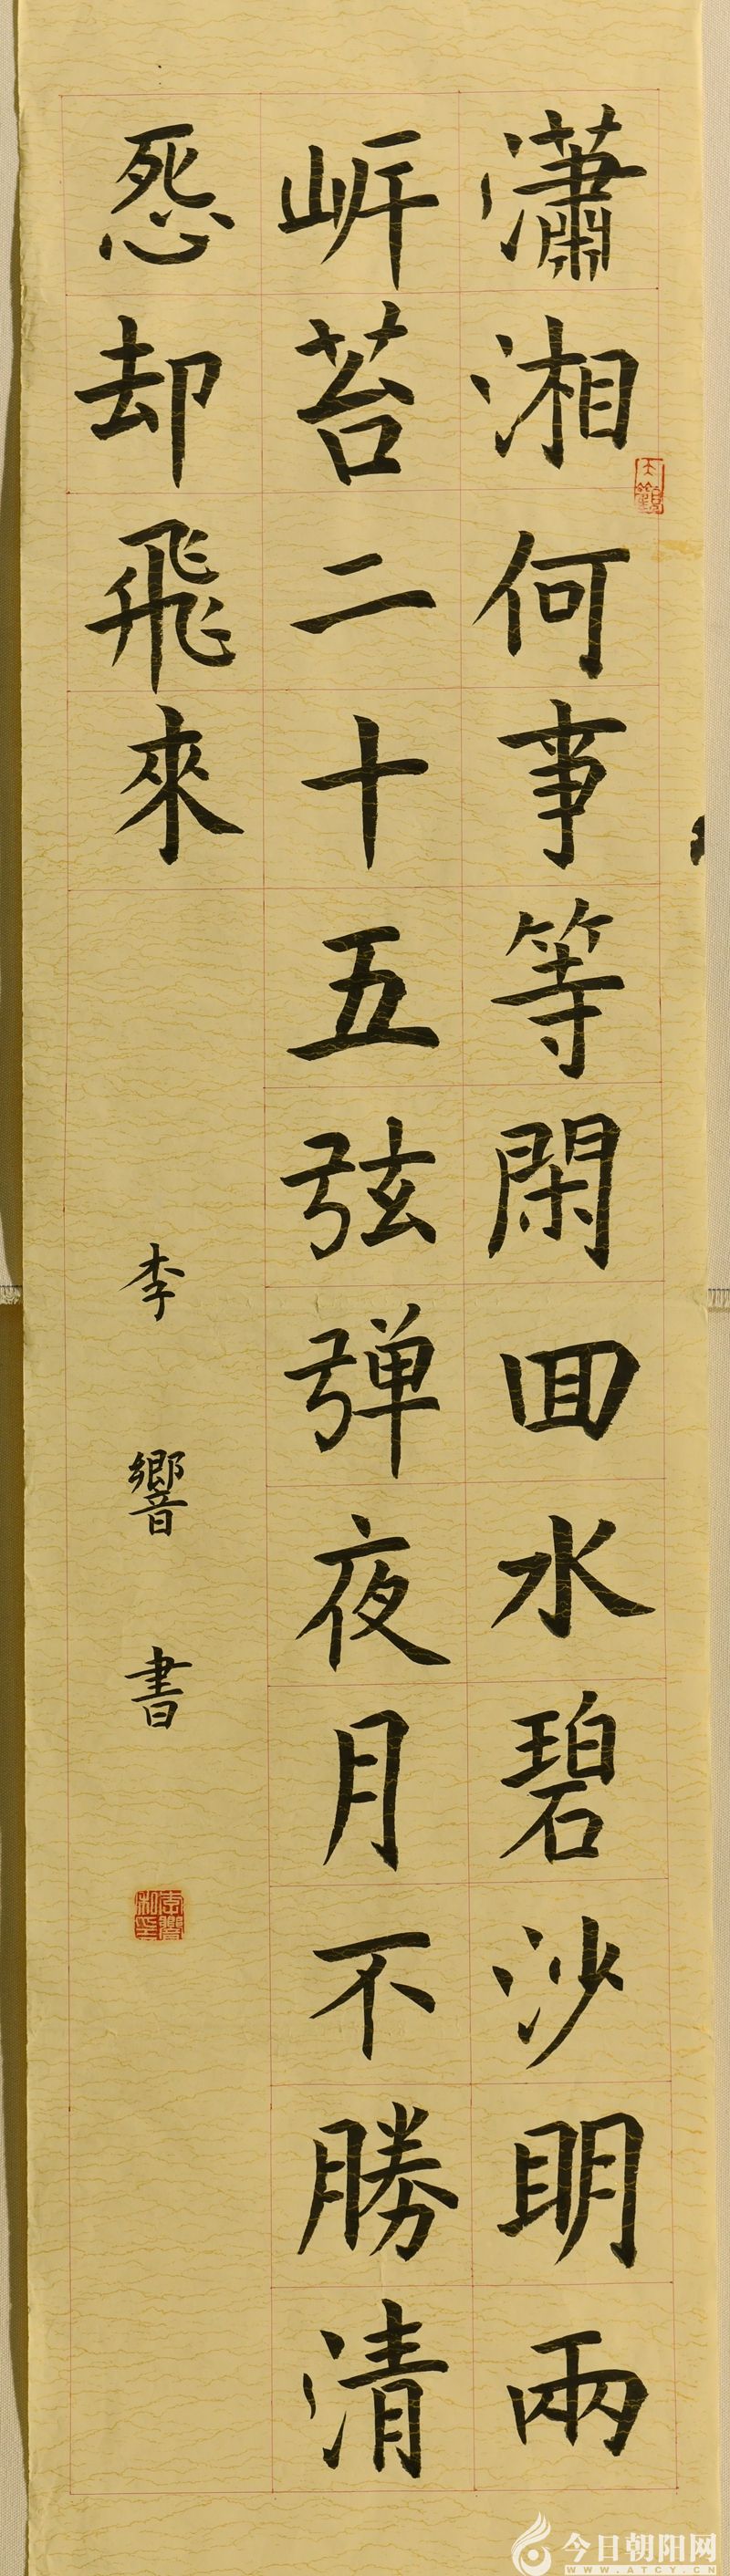 瀟湘何事等閑回水碧沙明兩
岍苔二十五弦弾夜月不勝清
怨却飛來
李響書
今日朝阳网
WWW.ATCY.CN